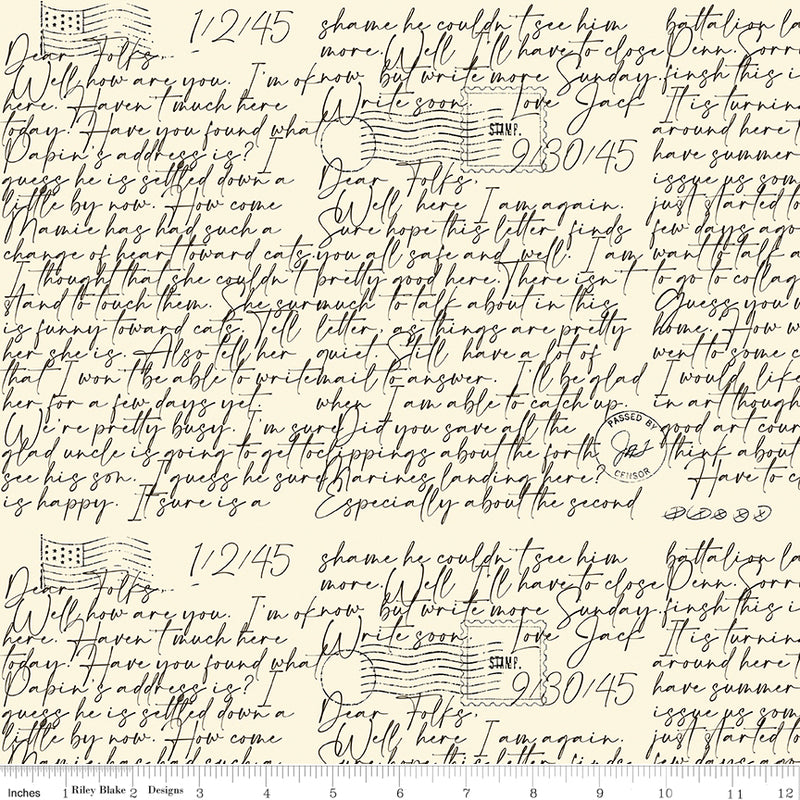 1/2/45
Dear Folks..
Well, how are you. I'm ok
here. Haven't much here
today. Have you found what
Dabin's address is? I
guess he is settled down a
little by now. How come
Mamie has had such a
change of heart toward cats.
I thought that she couldn't
stand to touch them. She sur
is funny toward cats. Tell
her she is. Also tell her
that I won't be able to write
her for a few days yet
We're pretty busy. I'm sure
glad uncle is going to get to
see his son. I guess he sure
is happy. It sure is a
shame he couldn't see him
more. Well I'll have to close
now but write more Sunday.
Write soon Love Jack
STAMP.
9/30/45
Dear Folks,
Well here I am again.
Sure hope this letter finds
you all safe and well. I am
pretty good here. There isn't
much to talk about in this
letter, as things are pretty
quiet. Still have a lot of
mail to answer. I'll be glad
when I am able to catch up.
Did you save all the
clippings about the forth
Marines landing here?
Especially about the second
PASSED BY
CENSOR
battalion la
Penn. Sorry
finsh this i
It is turnin
around here t
have summer
issue us some
just started to
few days ago
want to talk a
to go to collag
Guess you w
home. How w
went to some c
I would like
in art though
good art cour
think about
Have to cl
1/2/45
Dear Folks..
Well, how are you. I'm ok
here. Haven't much here
today. Have you found what
Dabin's address is? I
guess he is settled down a
little by now. How come
Mamie has had such a
shame he couldn't see him
more. Well I'll have to close
now but write more Sunday.
Write soon Love Jack
STAMP.
9/30/45
Dear Folks,
Well here I am again.
Sure hope this letter finds
battalion la
Penn. Sorry
finsh this i
It is turnin
around here t
have summer
issue us some
just started to
few days ago
Inches 1 Riley Blake 2 Designs 3 4 5 6 7 8 9 10 11 12